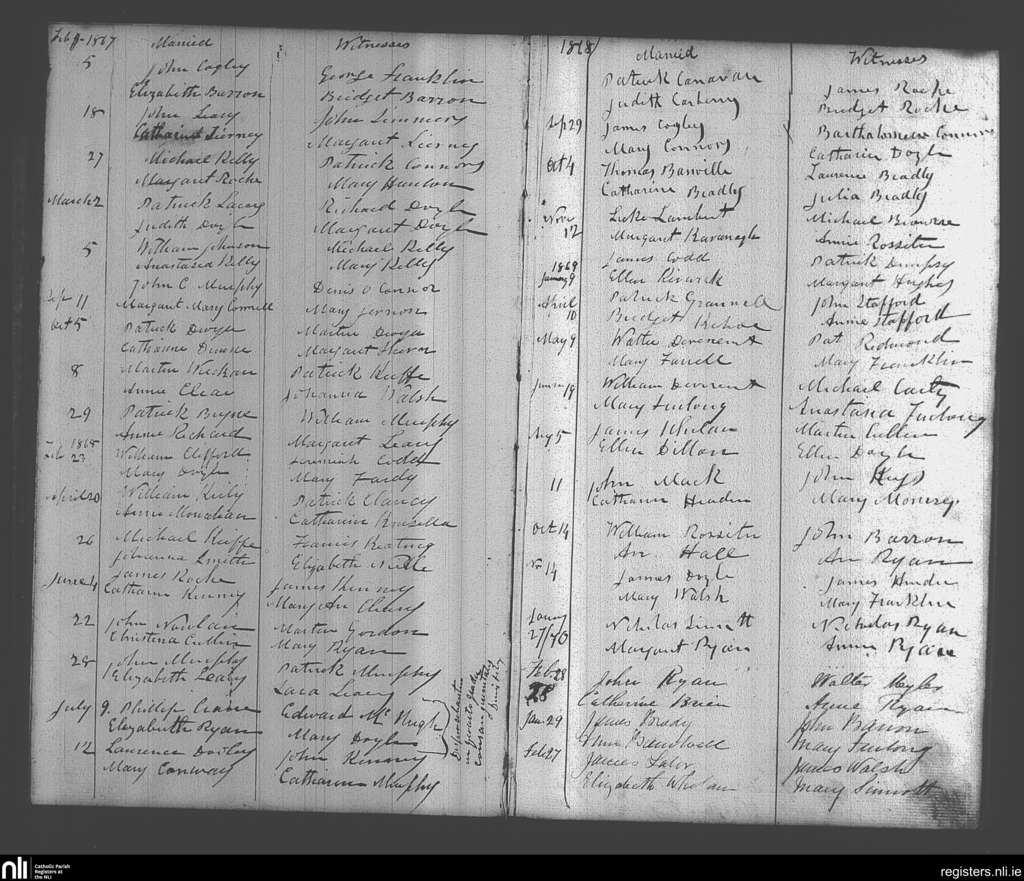 Feby 1867 Married Witnesses
5 John Cogley George Franklin
Elizabeth Barron Bridget Barron
18 John Leary John Simmons
Catharine Tierney Margaret
27 Michael Kelly Patrick Connors
Margaret Roche Mary Hanlon
March 2 Patrick Leary Richard Doyle
Judith Doyle Margaret Doyle
5 William Johnson Michael Kelly
Anastasia Kelly Mary Kelly
Sep 11 John C Murphy Denis O Connor
Margaret Mary Connell Mary
Oct 5 Patrick Dwyer Martin Dwyer
Catharine Margaret
8 Martin Patrick Keffe
Annie Johanna Walsh
29 Patrick Byrne William Murphy
Annie Richard Margaret Leary
Feb 1868 23 William Clifford Jeremiah Codd
Mary Doyle Mary Fardy
April 20 William Kiely Patrick Clancy
Annie Monahan Catharine Kinsella
26 Michael Keffe Francis Keating
Johanna Smith Elizabeth
June 4 James Roche James Kenny
Catharin Kenny Mary An Cleary
22 John Nowlan Martin Gordon
Christina Cullin Mary Ryan
28 John Murphy Patrick Murphy
Elizabeth Leary Sara Leary
July 9. Phillip Edward Mc Hugh
Elizabeth Ryan Mary Doyle
12 Laurence John Kenny
Mary Conway Catharine Murphy
Dispensitantur
in quarto gradu
consanguinitatis
1868 Married Witnesses
Patrick Canavan James Roche
Judith Carberry Bridget Roche
Sep 29 James Cogley Bartholomew Connors
Mary Connors Catharin Doyle
Oct 4 Thomas Banville Laurence Bradly
Catharine Bradly Julia Bradly
Nov 12 Luke Lambert Michael Browne
Margaret Kavanagh Annie Rossiter
1869 January 9 James Codd Patrick Dempsy
Ellen Margaret Hughes
April 10 Patrick Grannell John Stafford
Bridget Kehoe Annie Stafford
May 9 Walter Devereux Pat Redmond
Mary Farrell Mary Franklin
June 19 William Devereux Michael Carty
Mary Furlong Anastasia Furlong
Aug 5 James Whelan Martin Cullen
Ellen Dillon Ellen Doyle
11 John Mack John
Catharin Mary
Oct 14 William Rossiter John Barron
An Hall An Ryan
Nov 14 James Doyle James
Mary Walsh Mary Franklin
January 27/70 Nicholas Sinnott Nicholas Ryan
Margaret Ryan Annie Ryan
Feb. 28 John Ryan Walter Meyler
28 Catharine Brien Ryan
Jan. 29 James Brady John Barron
Mary Furlong
Feb 27 James James Walsh
Elizabeth Whelan Mary Sinnott
nli Catholic Parish
Registers at
the NLI
registers.nli.ie